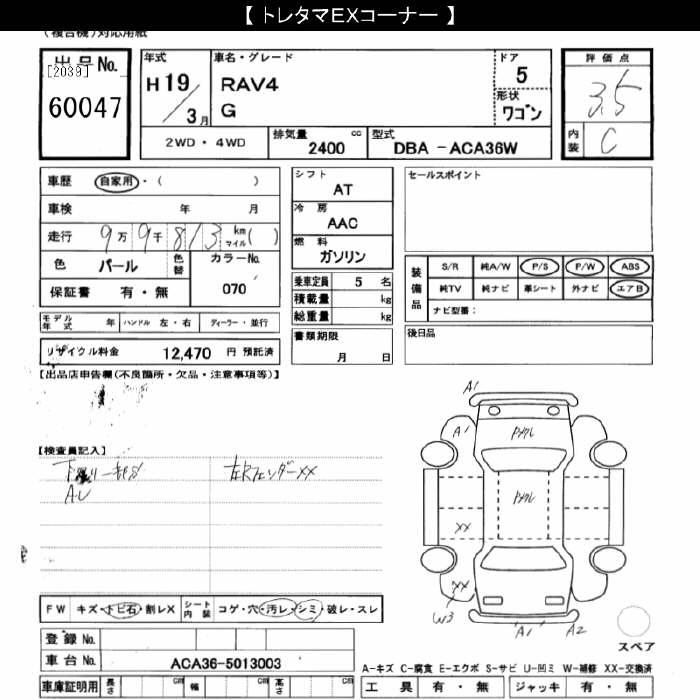 【 トレタマEXコーナー 】
(複合機)対応用紙
出品No.
[2039]
60047
年式
H19/3月
車名・グレード
RAV4
G
ドア
5
形状
ワゴン
評価点
3.5
内装
C
2WD ・ 4WD
排気量
cc
2400
型式
DBA -ACA36W
車歴
自家用・(　　　)
車検　年　月
走行
9万9千813
km
マイル
(　)
色
パール
色替
カラーNo.
070
保証書　有・無
シフト
AT
冷房
AAC
燃料
ガソリン
乗車定員　5　名
積載量　kg
総重量　kg
書類期限
月　日
セールスポイント
装備品
S/R　純A/W　P/S　P/W　ABS
純TV　純ナビ　革シート　外ナビ　エアB
ナビ型番：
後日品
モデル年式　年　ハンドル　左・右　ディーラー・並行
リサイクル料金　12,470　円　預託済
【出品店申告欄(不良箇所・欠品・注意事項等)】
【検査員記入】
AU
左クォーターフェンダーXX
A1
A1
XX
XX
W3
A1
A2
スペア
FW　キズ・トビ石・割レX
シート内装　コゲ・穴・汚レ・シミ・破レ・スレ
登録 No.
車台 No.
ACA36-5013003
車庫証明用　長さ　cm　幅　cm　高さ　cm
A-キズ　C-腐食　E-エクボ　S-サビ　U-凹ミ　W-補修　XX-交換済
工具　有・無　ジャッキ　有・無